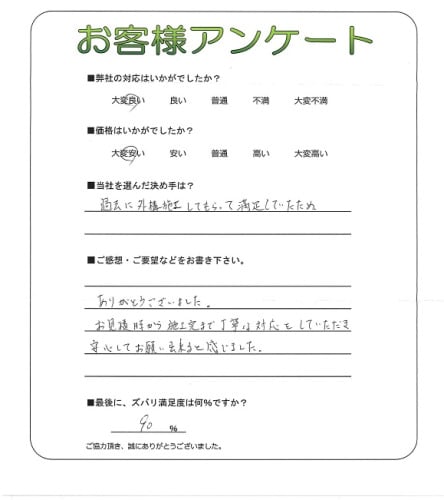 お客様アンケート
■弊社の対応はいかがでしたか?
大変良い 良い 普通 不満 大変不満
■価格はいかがでしたか?
大変安い 安い 普通 高い 大変高い
■当社を選んだ決め手は?
過去に外構施工してもらって満足していたため
■ご感想・ご要望などをお書き下さい。
ありがとうございました。
お見積時から施工完まで丁寧な対応をしていただき
安心してお願い出来ると感じました。
■最後に、ズバリ満足度は何%ですか?
90 %
ご協力頂き、誠にありがとうございました。